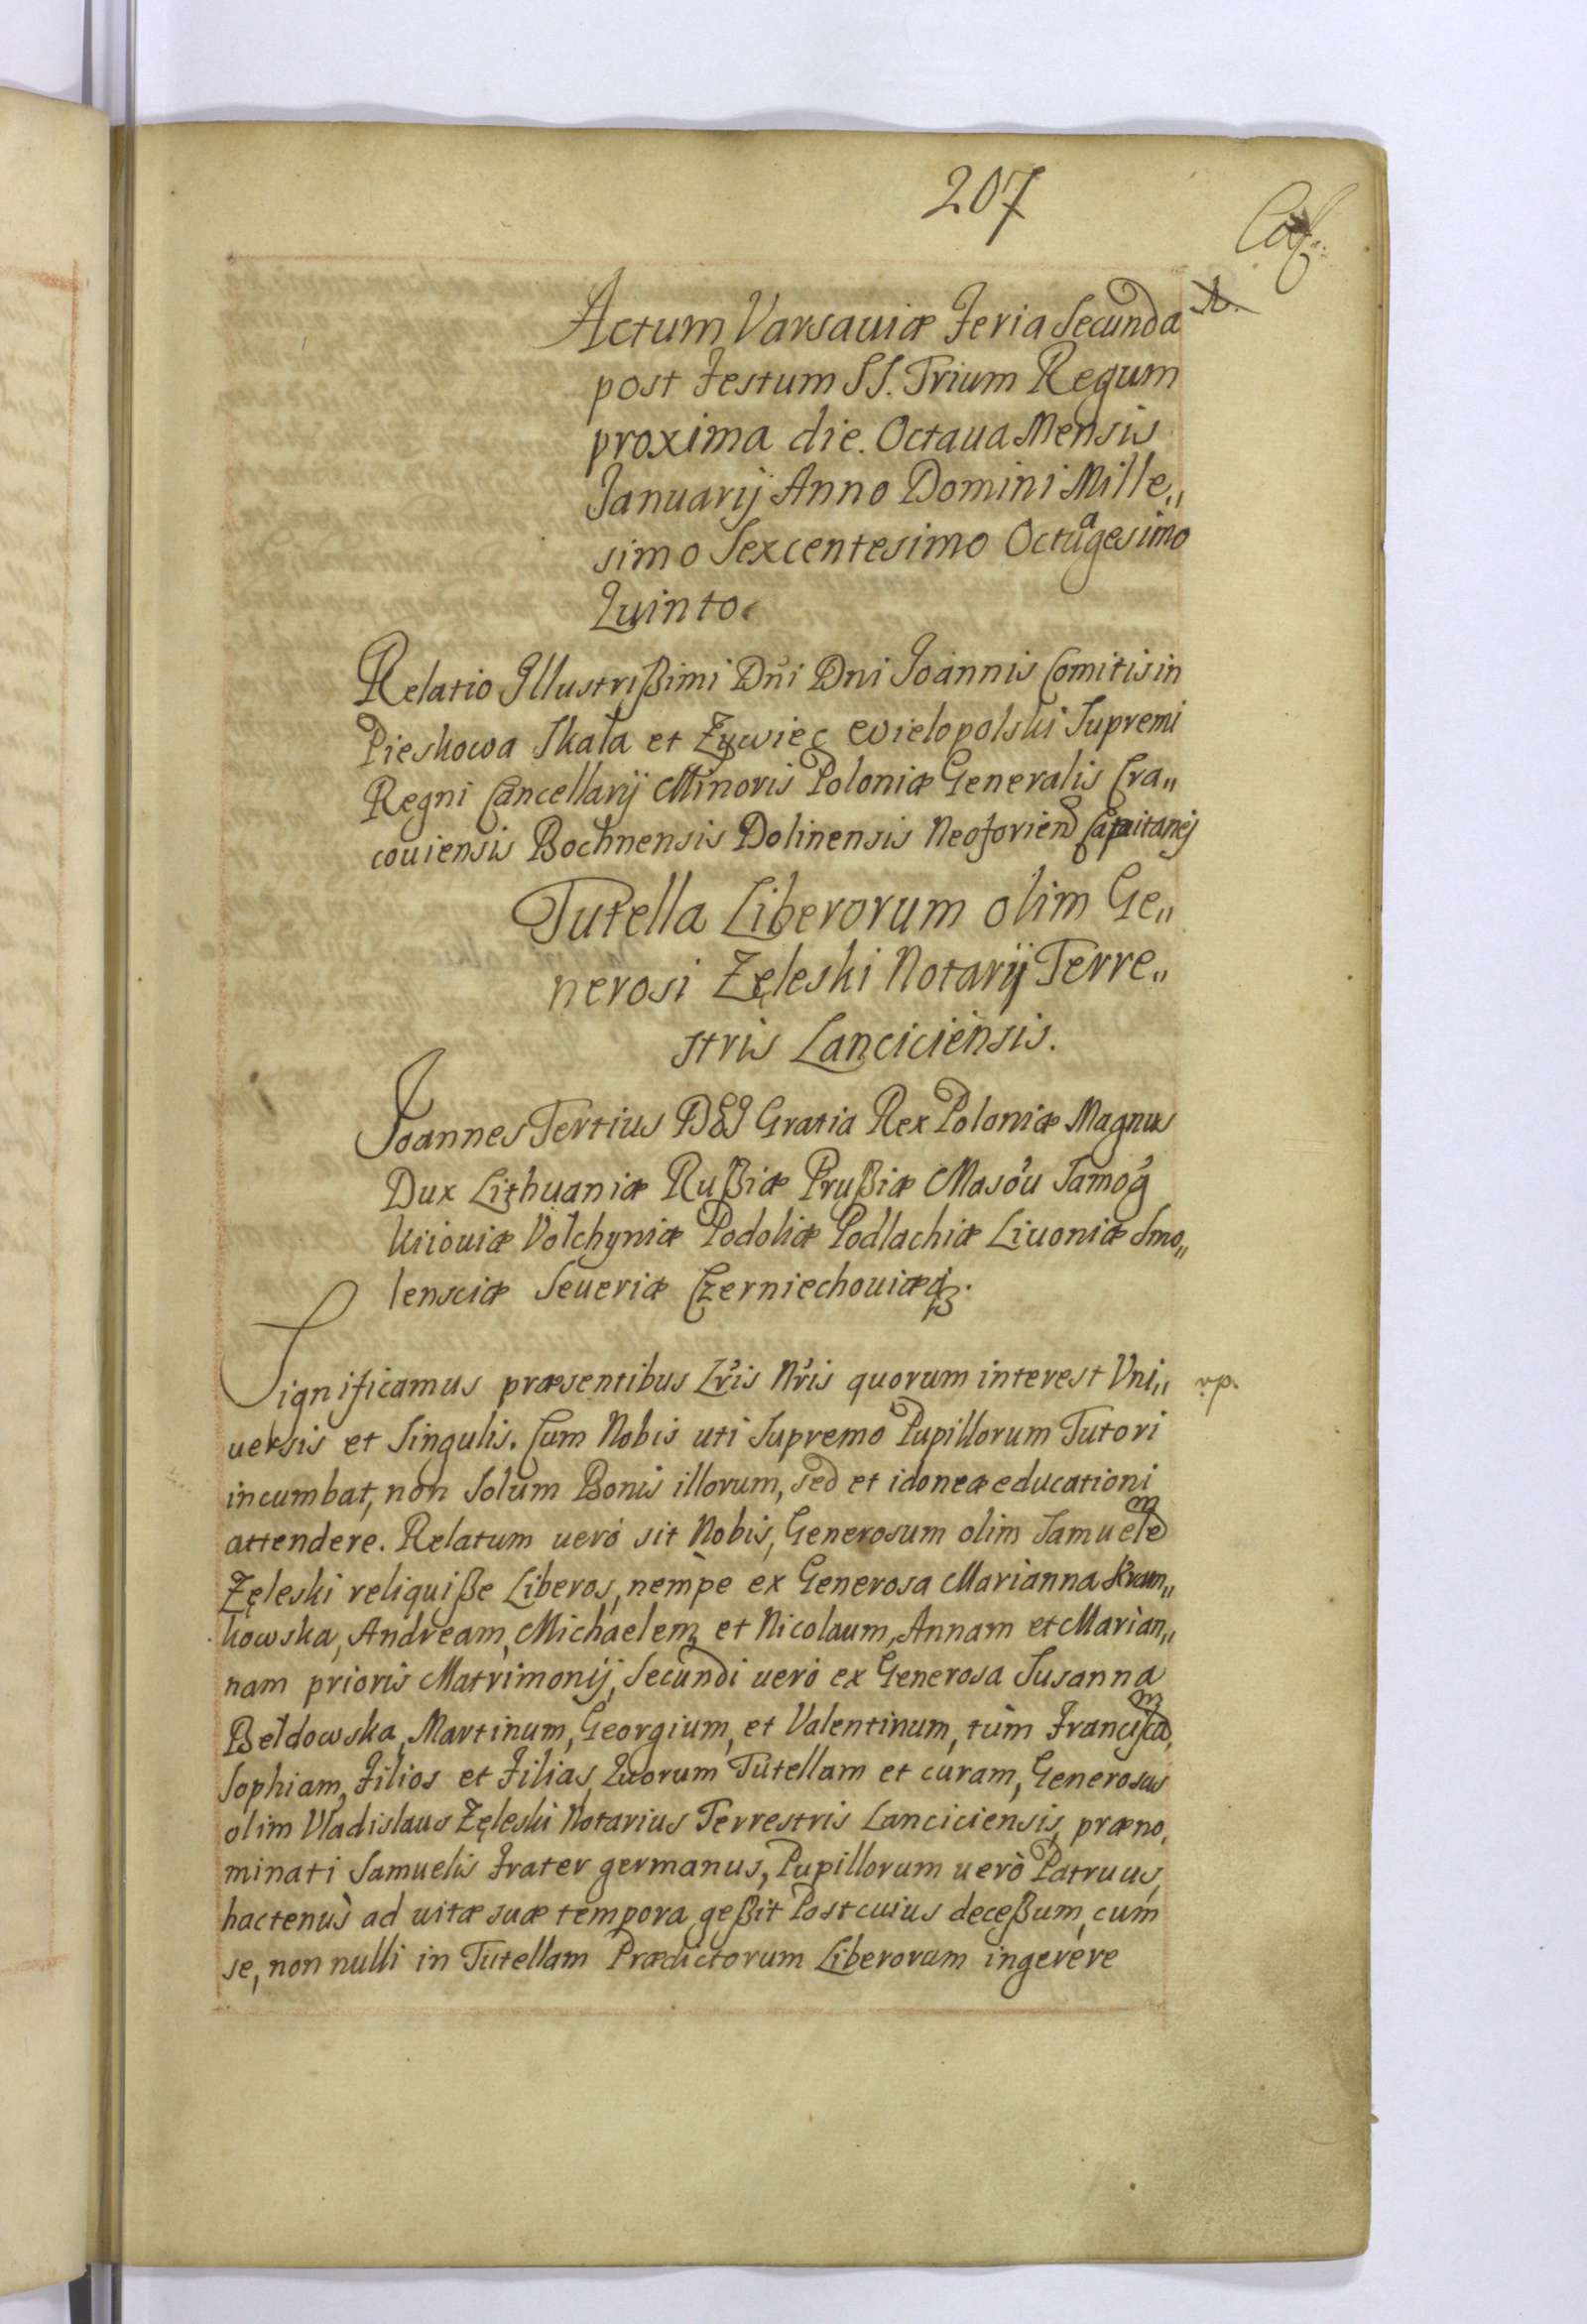 207
Actum Varsauiæ Feria Secunda
post Festum SS. Trium Regum
proxima die. Octaua Mensis
Januarij Anno Domini Mille„
simo Sexcentesimo Octuagesimo
Quinto.
Relatio Illustrißimi Dni Dni Joannis Comitis in
Pieskowa Skała et Zywiec Wielopolski Supremi
Regni Cancellarij Minoris Poloniæ Generalis Cra„
couiensis Bochnensis Dolinensis Neoforien Capitanej
Tutella Liberorum olim Ge„
nerosi Zęleski Notarij Terre„
stris Lanciciensis.
Joannes Tertius DEI Gratia Rex Poloniæ Magnus
Dux Lithuaniæ Rußiæ Prußiæ Masou Samog
Kiiouiæ Vołchyniæ Podoliæ Podlachiæ Liuoniæ Smo„
lensciæ Seueriæ Czerniechouiæq3.
Significamus præsentibus Lris Nris quorum interest Vni„
uersis et Singulis. Cum Nobis uti Supremo Pupillorum Tutori
incumbat, non Solum Bonis illorum, sed et idoneæ educationi
attendere. Relatum uerò sit Nobis, Generosum olim Samuelem
Zęleski reliquiße Liberos, nempe ex Generosa Marianna Krum„
kowska, Andream, Michaelem et Nicolaum, Annam et Marian„
nam prioris Matrimonij, Secundi uerò ex Generosa Susanna
Bełdowska, Martinum, Georgium, et Valentinum, tùm Franciscam,
Sophiam, Filios et Filias, Quorum Tutellam et curam, Generosus
olim Vladislaus Zęleski Notarius Terrestris Lanciciensis, præno,
minati Samuelis Frater germanus, Pupillorum uerò Patruus,
hactenus ad uitæ suæ tempora geßit Post cuius deceßum, cum
se, non nulli in Tutellam Prædictorum Liberorum ingerere